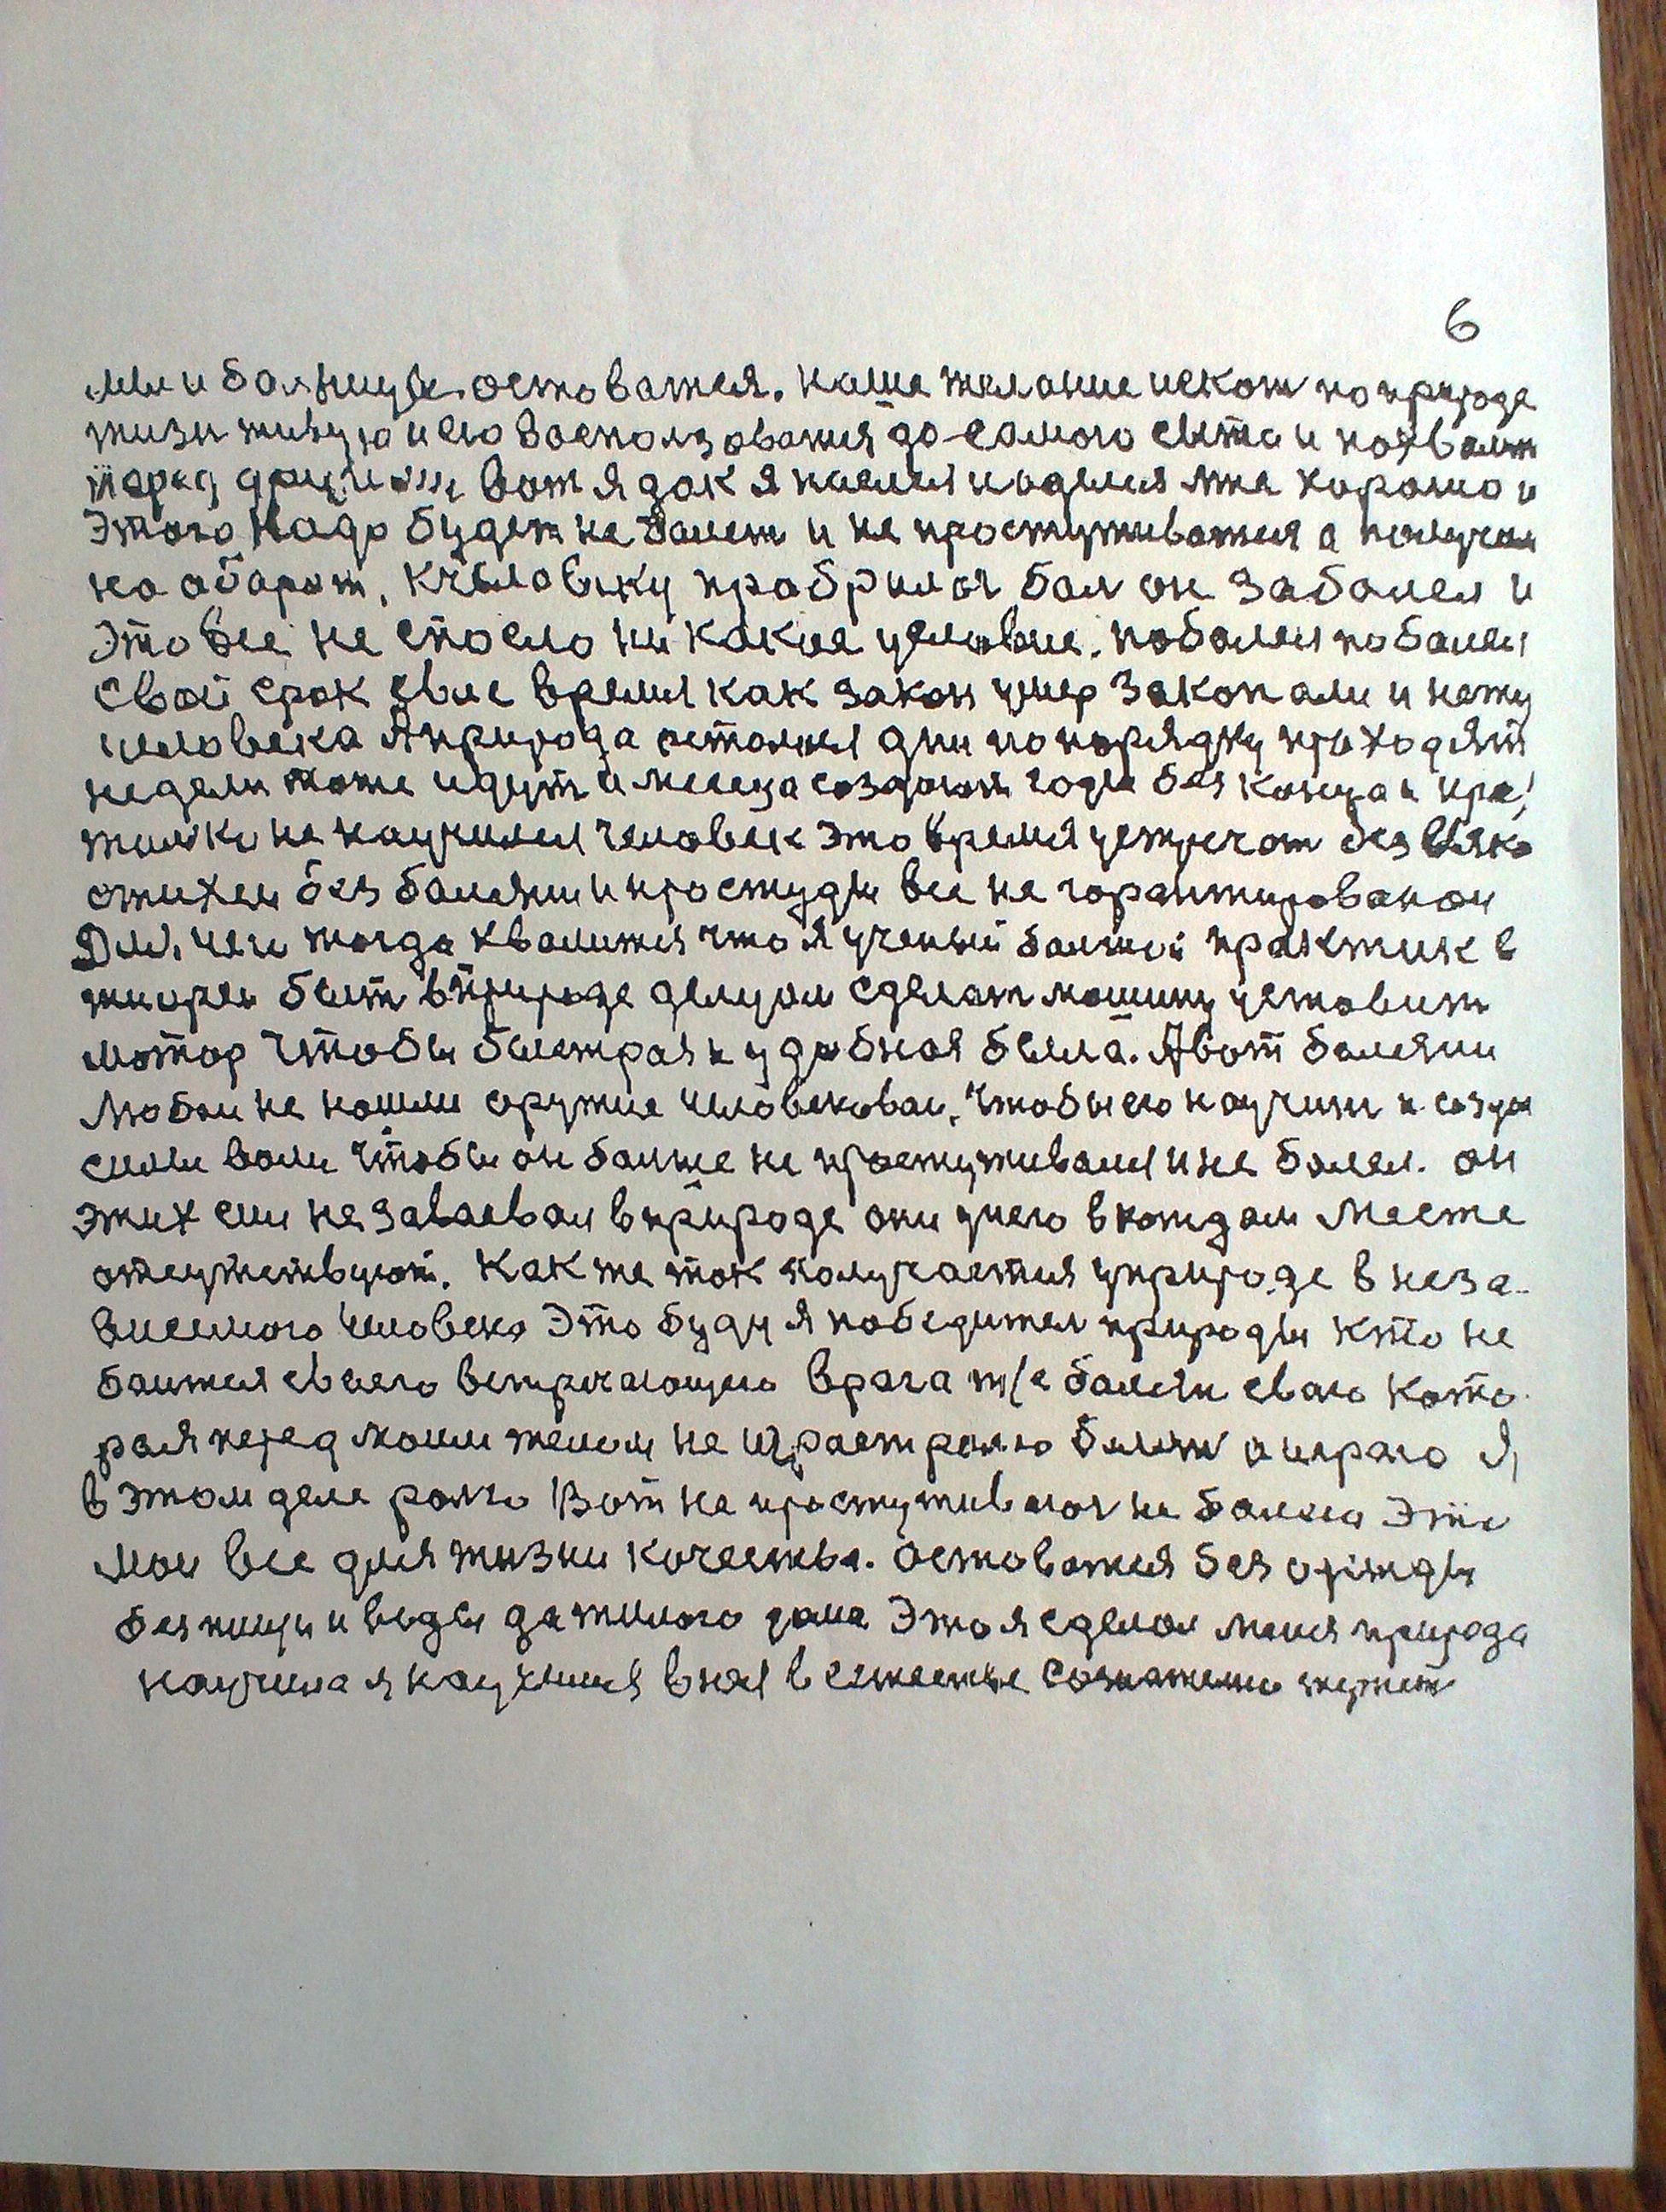 6
ми и болници оставатся. наше желание искат по природе
жизн живую и ею воспользоватися до самого сыта и похвалит
перед другими вот я дак я наелся и оделся мне хорошо и
этого надо будет не болет и не простуживатся а получаи
на абарот, к человеку прабрилас бол он заболел и
это все не спосло ни какие условие. поболел поболел
свой срок свие время как закон умер закопали и нету
человека А природа осталася дни по порядку проходят
недели тоже идут а месеца создают годы без конца и кра/
толко не научился человек это время устречат без всяко
стихеи без болезни и простуды все не горантировонои
Для чего тогда хвалится что я ученый болшой практик в
теории быт в природе делцом сделат машину установит
мотор чтобы быстрая и удобная была. А вот болезни
любои не нашли оружие человековои, чтобы его научит и созда
силы воли чтобы он болше не простуживался и не болел. он
этих сил не заваевал в природе они у него в каждом месте
отсуствуют. Как же так получается у природе в неза-
висемого человека Это буду я победител природы кто не
боится своего встречающего врага т/е болезн сваю кото
рая перед моим телом не играет ролю болезн а играю я
в этом деле ролю Вот не простуживаюс не болею Это
мои все для жизни качества. оставатся без одежды
без пищи и воды да жилого дома Это я сделал меня природа
научила я научился в неи в естестве сознателно терпет